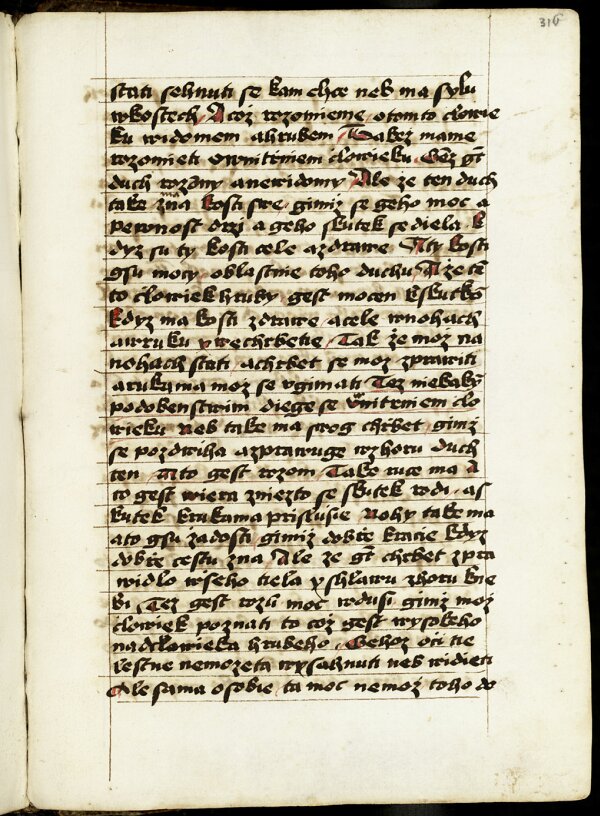 316
stati sehnuti se kam chce neb ma sylu
wkostech A což rozomieme o tomto clowie
ku widomem a hrubem Takež mame
rozomieti o wnitrniem clowieku
duch rozomny a newidomy Ale že ten duch
take ma kosti swe gimiž se geho moc a
pewnost drži a geho skutek se diela k
dyž su ty kosti cele a zdrawe A ty kosti
gsu mocy oblastnie toho duchu A že tē
to clowiek hruby gest mocen kskutkō
kdyz ma kosti zdrawe a cele wnohach
awruku y wechrbetie Tak že mož na
nohach stati achrbet se mož zprawiti
arukama mož se ugimati Tez niekakȳ
podobenstwim diege se wnitrniem clo
wieku Neb take ma swog chrbet gimž
se pozdwiha azprawuge wzhoru duch
ten A to gest rozom Take ruce ma A
to gest wiera zniezto se skutek rodi a s
kutek krukama prislusie Nohy take ma
a to gsu žadosti gimiž dobře kracie kdyz
dobře cestu zna Ale že gt chrbet zpra
widlo wšeho tiela y shlawu zhoru kie
Tez gest rozū moc wdusi gimž mož
clowiek poznati to což gest wysokeho
nadčlowieka hrubeho Gehož oci tie
lestne nemožeta wysahnuti neb widieti
Ale sama o sobie ta moc nemož toho do